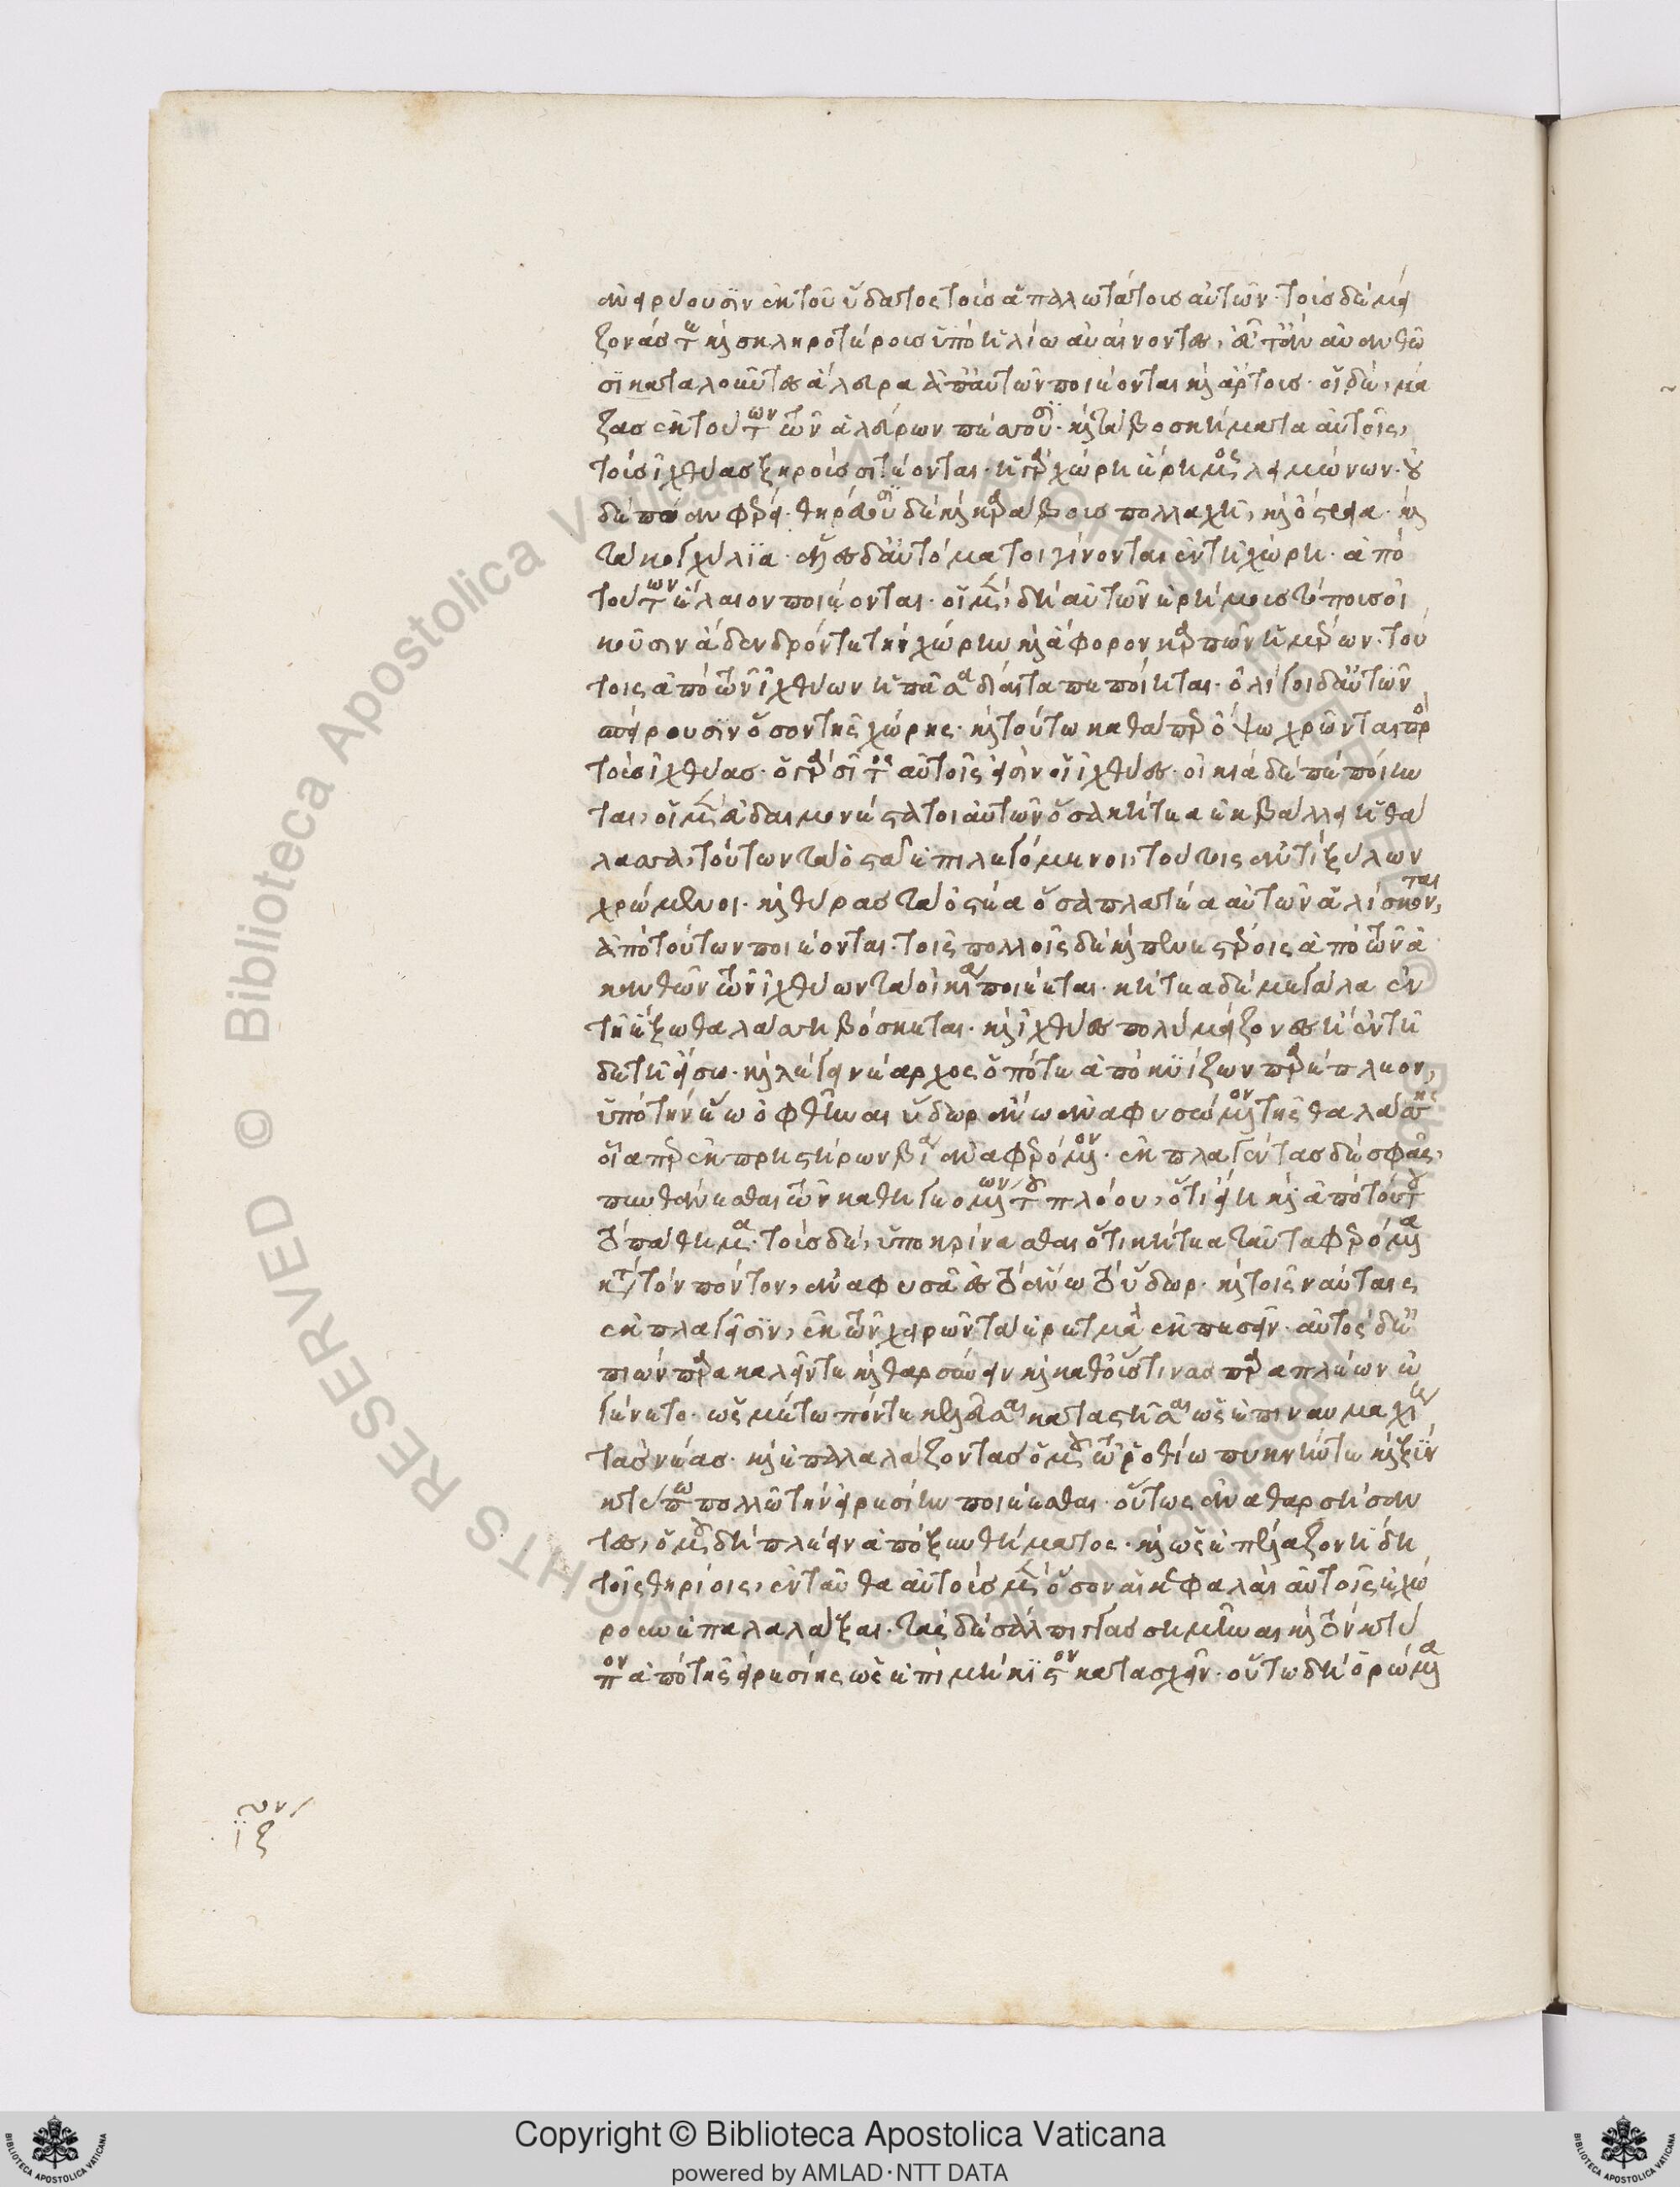 ἀνειρύουσιν ἐκ τοῦ ὕδατος τοὺς ἁπαλωτάτους αὐτῶν· τοὺς δὲ μεί
ζονάς τε καὶ σκληροτέρους ὑπὸ ἡλίω αὐαίνοντες, εὖτ' ἂν αὐανθῶ
σϊ καταλοῦντες ἄλευρα ἀπ' αὐτῶν ποιέονται καὶ ἄρτους· οἱ δὲ, μά
ζας ἐκ τούτων τῶν ἀλεύρων πέσσουσϊ· καὶ τὰ βοσκήματα αὐτοῖς,
τοὺς ἰχθύας ξηροὺς σιτέονται· ἡ γὰρ χώρη ἔρημος λειμώνων· οὐ
δὲ πόαν φέρει· θηρεύουσϊ δὲ καὶ καράβους πολλαχῆ, καὶ ὄστρεια· καὶ
τὰ κογχύλϊα· ἅλες δ' αὐτόματοι γίνονται ἐν τῆ χώρη· ἀπὸ
τούτων ἔλαιον ποιέονται· οἱ μὲν, δὴ αὐτῶν ἐρήμους τόπους οἰ
κοῦσιν ἄδενδρόν τε τὴν χώρην καὶ ἄφορον καρπῶν ἡμέρων· τού
τοις ἀπὸ τῶν ἰχθύων ἡ πᾶσα δίαιτα πεποίηται· ὀλίγοι δ' αὐτῶν
σπείρουσϊν ὅσον τῆς χώρης· καὶ τούτω καθάπερ ὄψω χρῶνται πρὸς
τοὺς ἰχθύας· ὁ γὰρ σῖτος αὐτοῖς εἰσὶν οἱ ἰχθύες· οἰκία δὲ πεποίην
ται, οἱ μὲν εὐδαιμονέστατοι αὐτῶν ὅσα κήτεα ἐκβάλλει ἡ θά
λασσα, τούτων τὰ ὀστᾶ ἐπιλεγόμενοι, τούτοις ἀντὶ ξύλων
χρώμενοι· καὶ θύρας τὰ ὀστέα ὅσα πλατέα αὐτῶν ἁλίσκονται,
ἀπὸ τούτων ποιέονται· τοῖς πολλοῖς δὲ καὶ πενεστέροις ἀπὸ τῶν ἀ
κανθῶν τῶν ἰχθύων τὰ οἰκία ποιέεται· κήτεα δὲ μεγάλα ἐν
τῆ ἔξω θαλάσση βόσκεται· καὶ ἰχθύες πολὺ μείζονες ἢ ἐν τῆ
δε τῆ εἴσω· καὶ λέγει νέαρχος ὁπότε ἀπὸ κυΐζων παρέπλεον,
ὑπὸ τὴν ἕω ὀφθῆναι ὕδωρ ἄνω ἀναφυσώμενον τῆς θαλάσσης
οἷά περ ἐκ πρηστήρων βία ἀναφερόμενον· ἐκπλαγέντας δὲ σφᾶς,
πυνθάνεσθαι τῶν καθηγεομένων τοῦ πλόου, ὅτι εἴη καὶ ἀπὸ τούτου
τὸ πάθημα· τοὺς δὲ, ὑποκρίνασθαι ὅτι κήτεα ταῦτα φερόμενα
κατὰ τὸν πόντον, ἀναφυσᾶ ἐς τὸ ἄνω τὸ ὕδωρ· καὶ τοῖς ναύταις
ἐκπλαγεῖσϊν, ἐκ τῶν χειρῶν τὰ ἐρετμὰ ἐκπεσεῖν· αὐτὸς δὲ ἐ
πιὼν παρακαλεῖν τε καὶ θαρσύνειν καὶ καθ' οὕστινας παραπλέων ἐ
γένετο· ὡς μέτωπόν τε κελεῦσαι καταστῆσαι ὡς ἐπὶ ναυμαχίη
τὰς νέας· καὶ ἐπαλαλάζοντας ὁμοῦ τῶ ῥοθίω πυκνήν τε καὶ ξὺν
κτύπω πολλῶ τὴν εἰρεσίην ποιέεσθαι· οὕτως ἀναθαρσήσαν
τες, ὁμοῦ δὴ πλέειν ἀπὸ ξυνθήματος· καὶ ὡς ἐπέλαζον ἤδη
τοῖς θηρίοις, ἐνταῦθα αὐτοὺς μὲν ὅσον αἱ κεφαλαὶ αὐτοῖς ἐχώ
ρεον ἐπαλαλάξαι· ταῖς δὲ σάλπιγξ σημῆναι καὶ τὸν κτύ
πον ἀπὸ τῆς εἰρεσίης ὡς ἐπὶ μήκϊστον κατασχεῖν· οὕτω δὴ ὁρώμενα
Copyright © Biblioteca Apostolica Vaticana
powered by AMLAD·NTT DATA